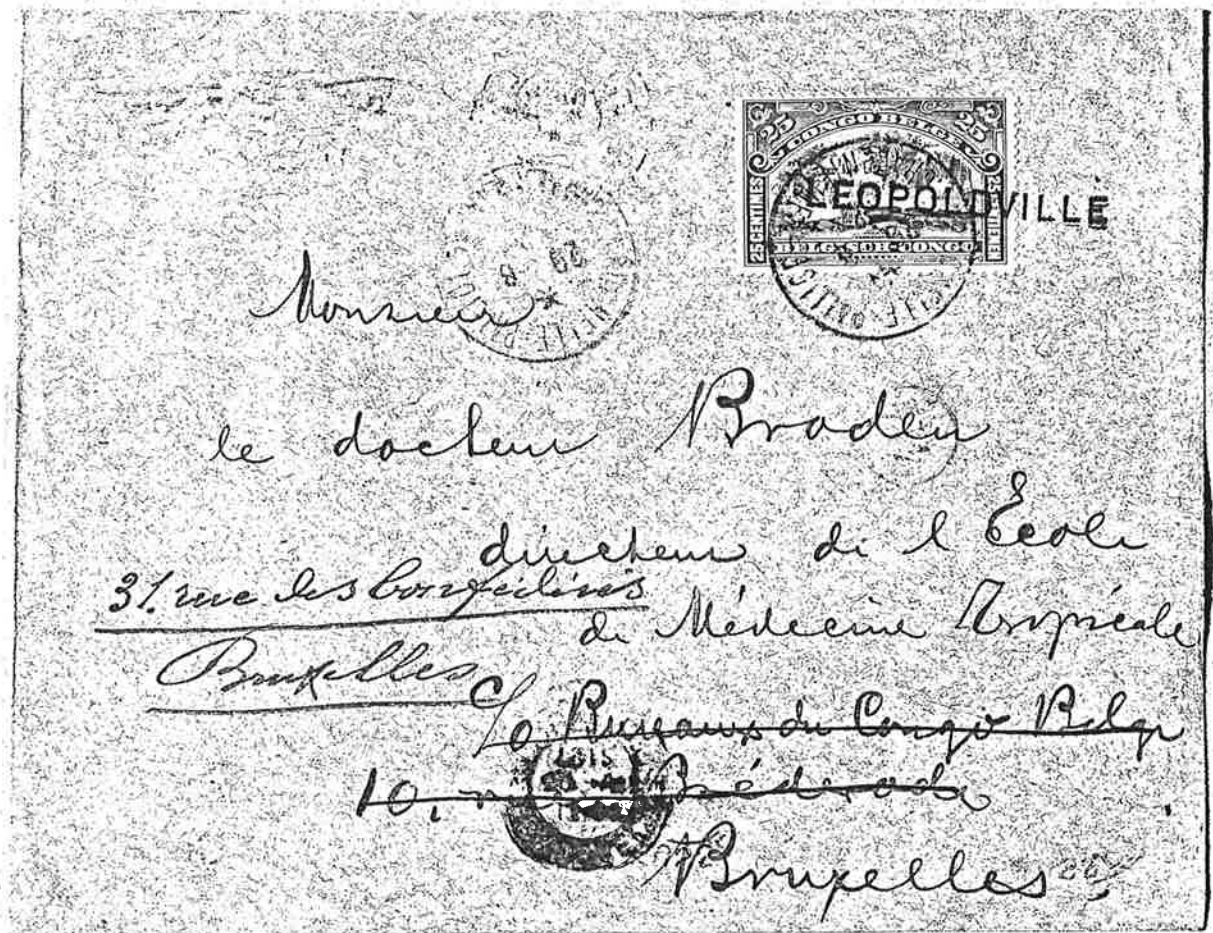 25 CONGO BELGE 25
LEOPOLDVILLE
25 CENTIMES
BELGISCH-CONGO
29
8
Monsieur
le docteur Broden
directeur de l Ecole
31. rue des
de Médecine Tropicale
Bruxelles
c/o Bureaux du Congo Belge
10, Bréderode
Bruxelles